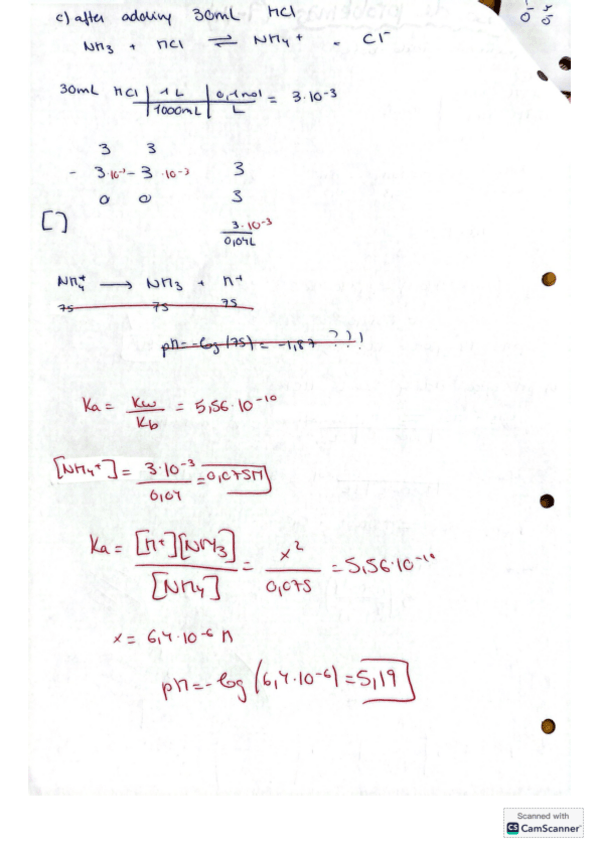 c) after adding 30mL HCl
NH3 + HCl ⇌ NH4+ - Cl-
30mL HCl | 1L | 0,1mol = 3·10-3
| 1000mL | L
3 3
- 3·10-3 - 3·10-3 3
0 0 3
[ ] 3·10-3
0,04L
NH4+ → NH3 + H+
75 75 75
pH = -log(75) = -1,87 ???!
Ka = Kw/Kb = 5,56·10-10
[NH4+] = 3·10-3/0,04 = 0,075M
Ka = [H+][NH3]/[NH4] = x2/0,075 = 5,56·10-10
x = 6,4·10-6 M
pH = -log(6,4·10-6) = 5,19
Scanned with
CS CamScanner